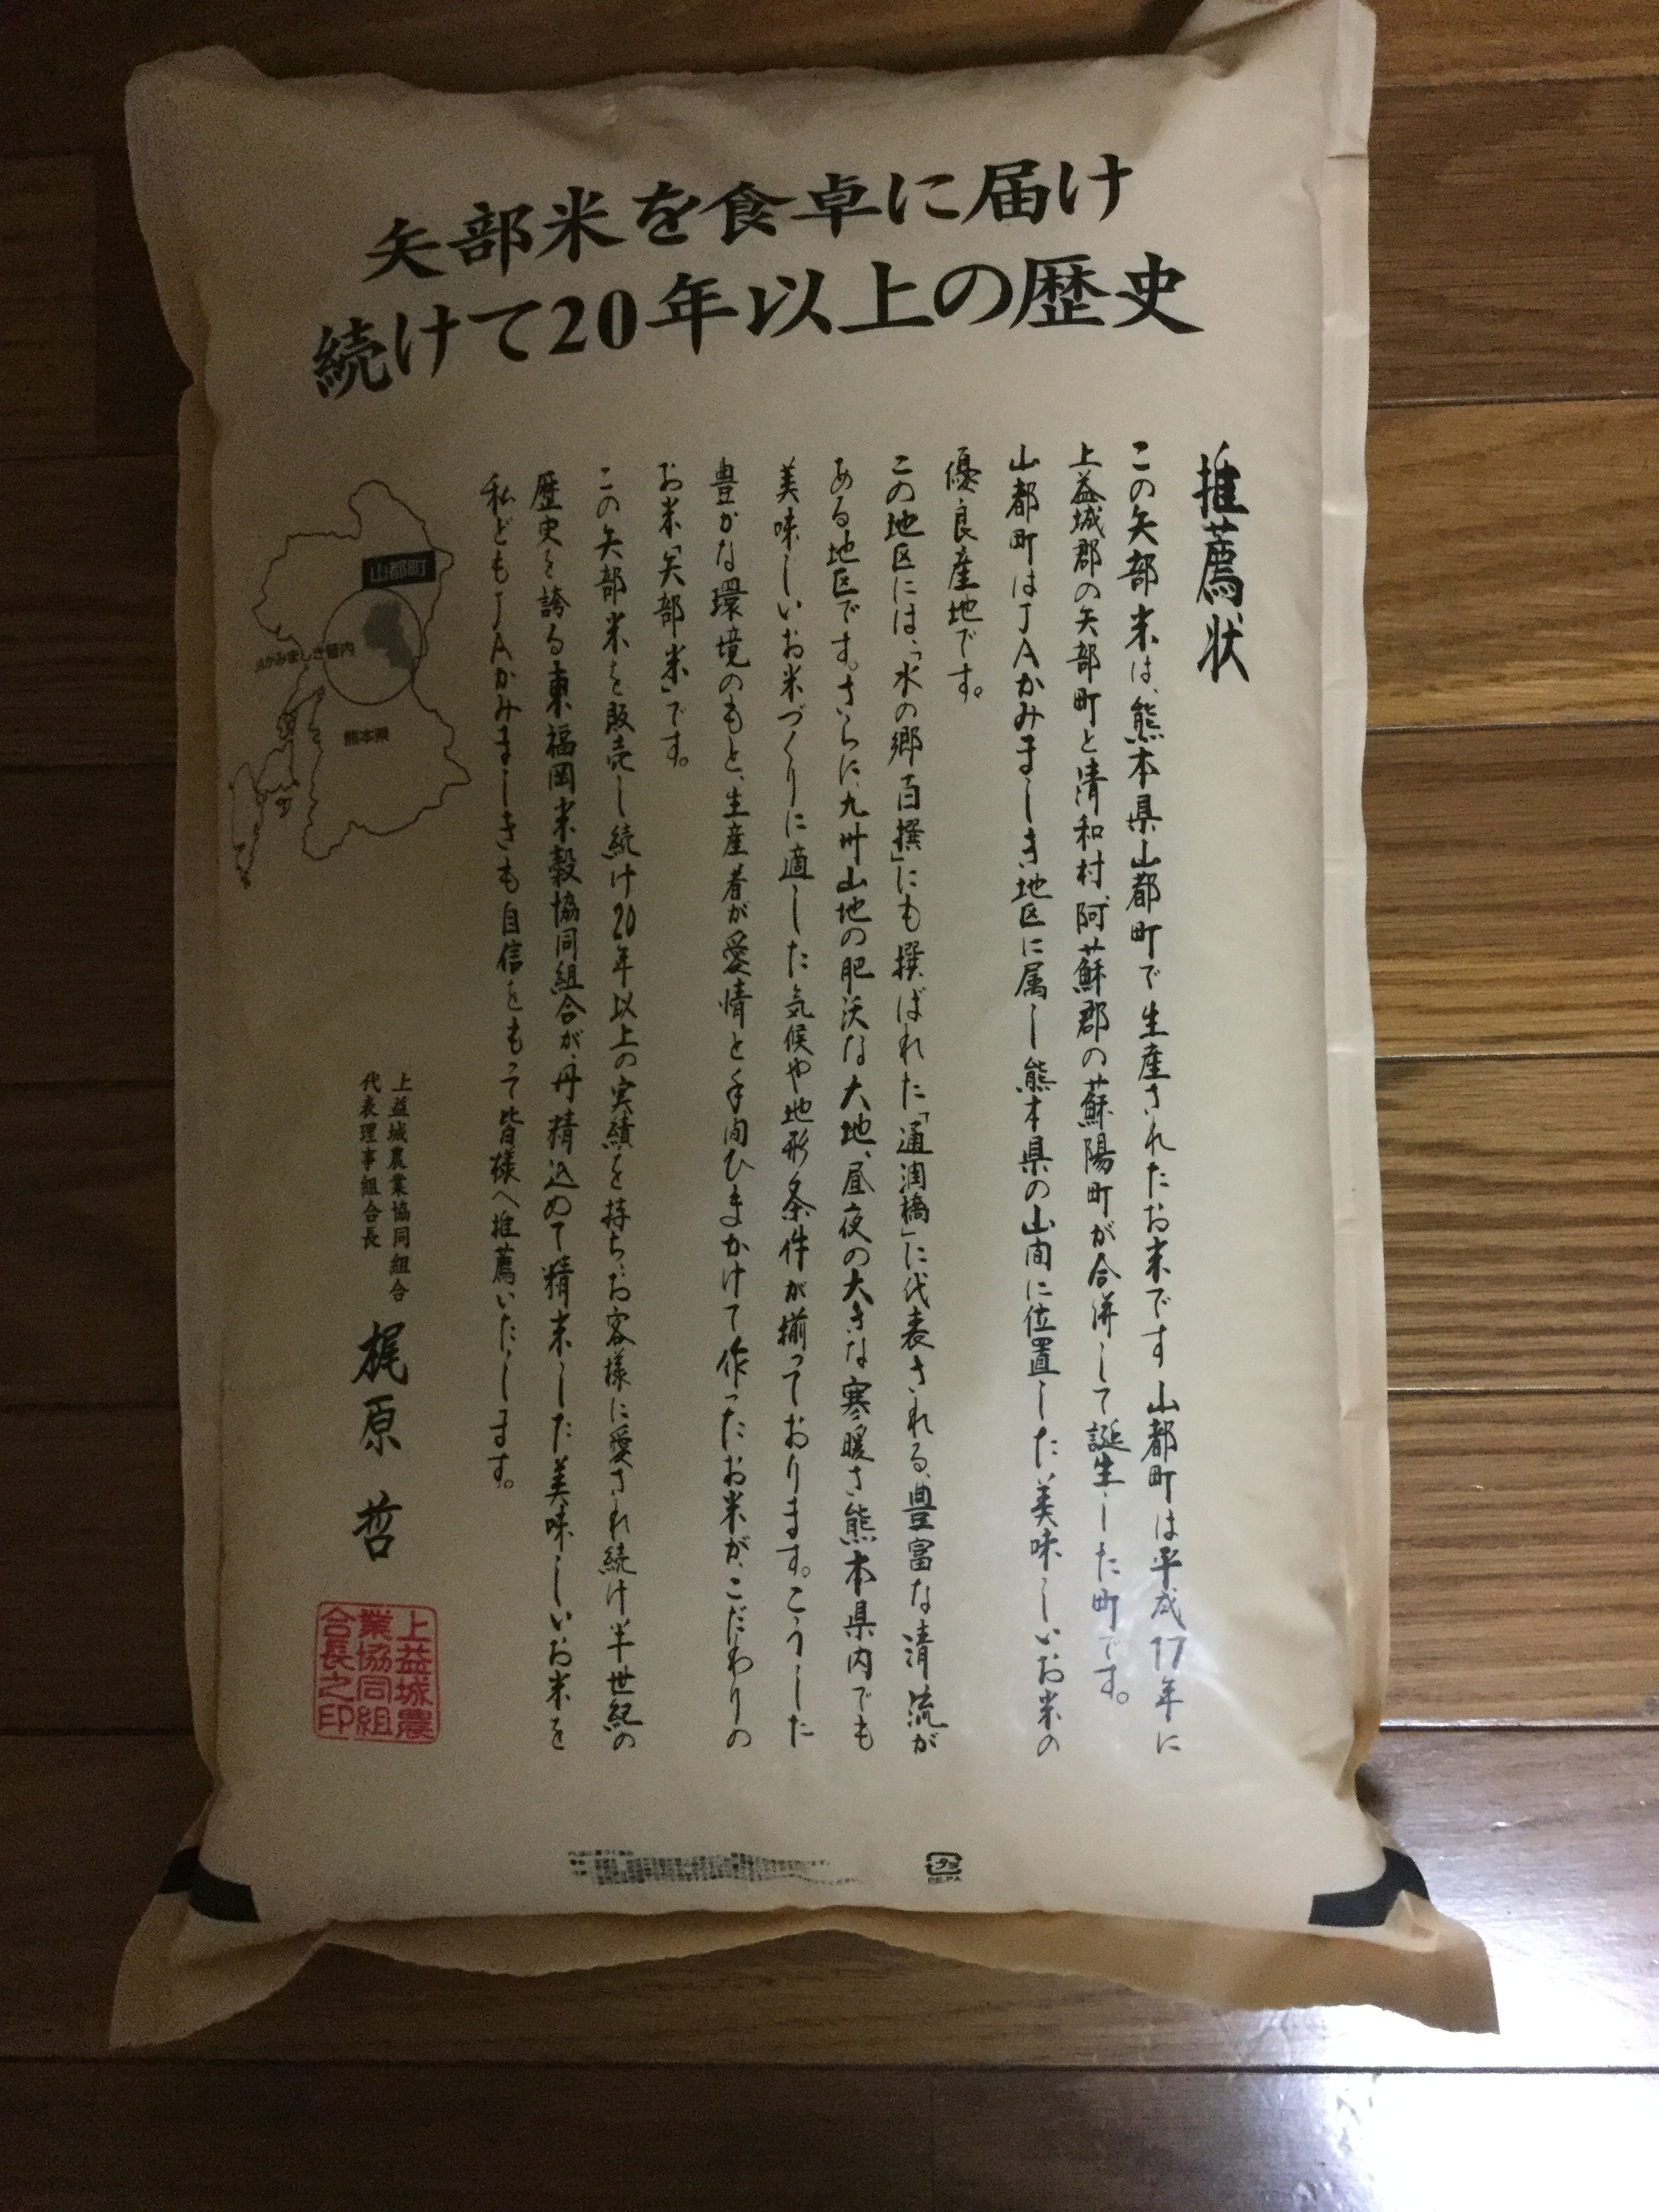 矢部米を食卓に届け
続けて20年以上の歴史
推薦状
この矢部米は、熊本県山都町で生産されたお米です山都町は平成17年に
上益城郡の矢部町と清和村、阿蘇郡の蘇陽町が合併して誕生した町です。
山都町はJAかみましき地区に属し熊本県の山間に位置した美味しいお米の
優良産地です。
この地区には、「水の郷百撰」にも撰ばれた「通潤橋」に代表される、豊富な清流が
ある地区です。さらに、九州山地の肥沃な大地、昼夜の大きな寒暖さ熊本県内でも
美味しいお米づくりに適した気候や地形条件が揃っております。こうした
豊かな環境のもと、生産者が愛情と手間ひまかけて作ったお米が、こだわりの
お米「矢部米」です。
この矢部米を販売し続け20年以上の実績を持ち、お客様に愛され続け半世紀の
歴史を誇る東福岡米穀協同組合が、丹精込めて精米した美味しいお米を
私どもJAかみましきも自信をもって皆様へ推薦いたします。
上益城農業協同組合
代表理事組合長
梶原 哲
上益城農
業協同組
合長之印
山都町
JAかみましき管内
熊本県
プラ
PE,PA